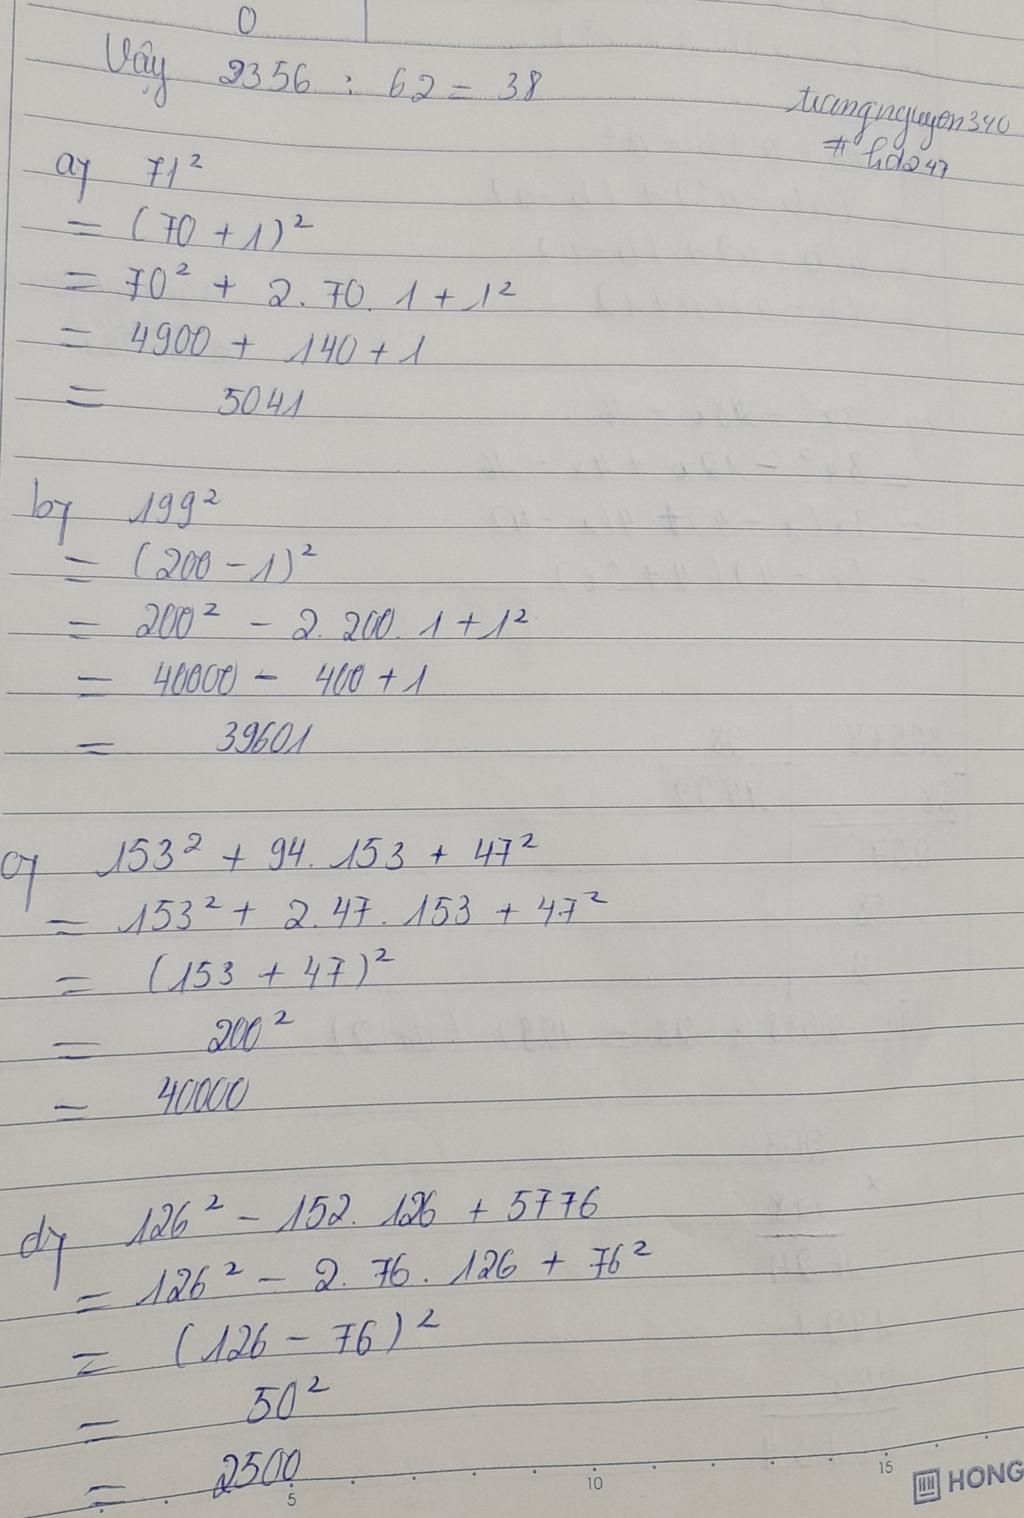 0
Vậy 2356 : 62 = 38
trangnguyen340
# hd247
a) 71²
= (70 + 1)²
= 70² + 2.70.1 + 1²
= 4900 + 140 + 1
= 5041
b) 199²
= (200 - 1)²
= 200² - 2.200.1 + 1²
= 40000 - 400 + 1
= 39601
c) 153² + 94.153 + 47²
= 153² + 2.47.153 + 47²
= (153 + 47)²
= 200²
= 40000
d) 126² - 152.126 + 5776
= 126² - 2.76.126 + 76²
= (126 - 76)²
= 50²
= 2500
5 10 15
HONG